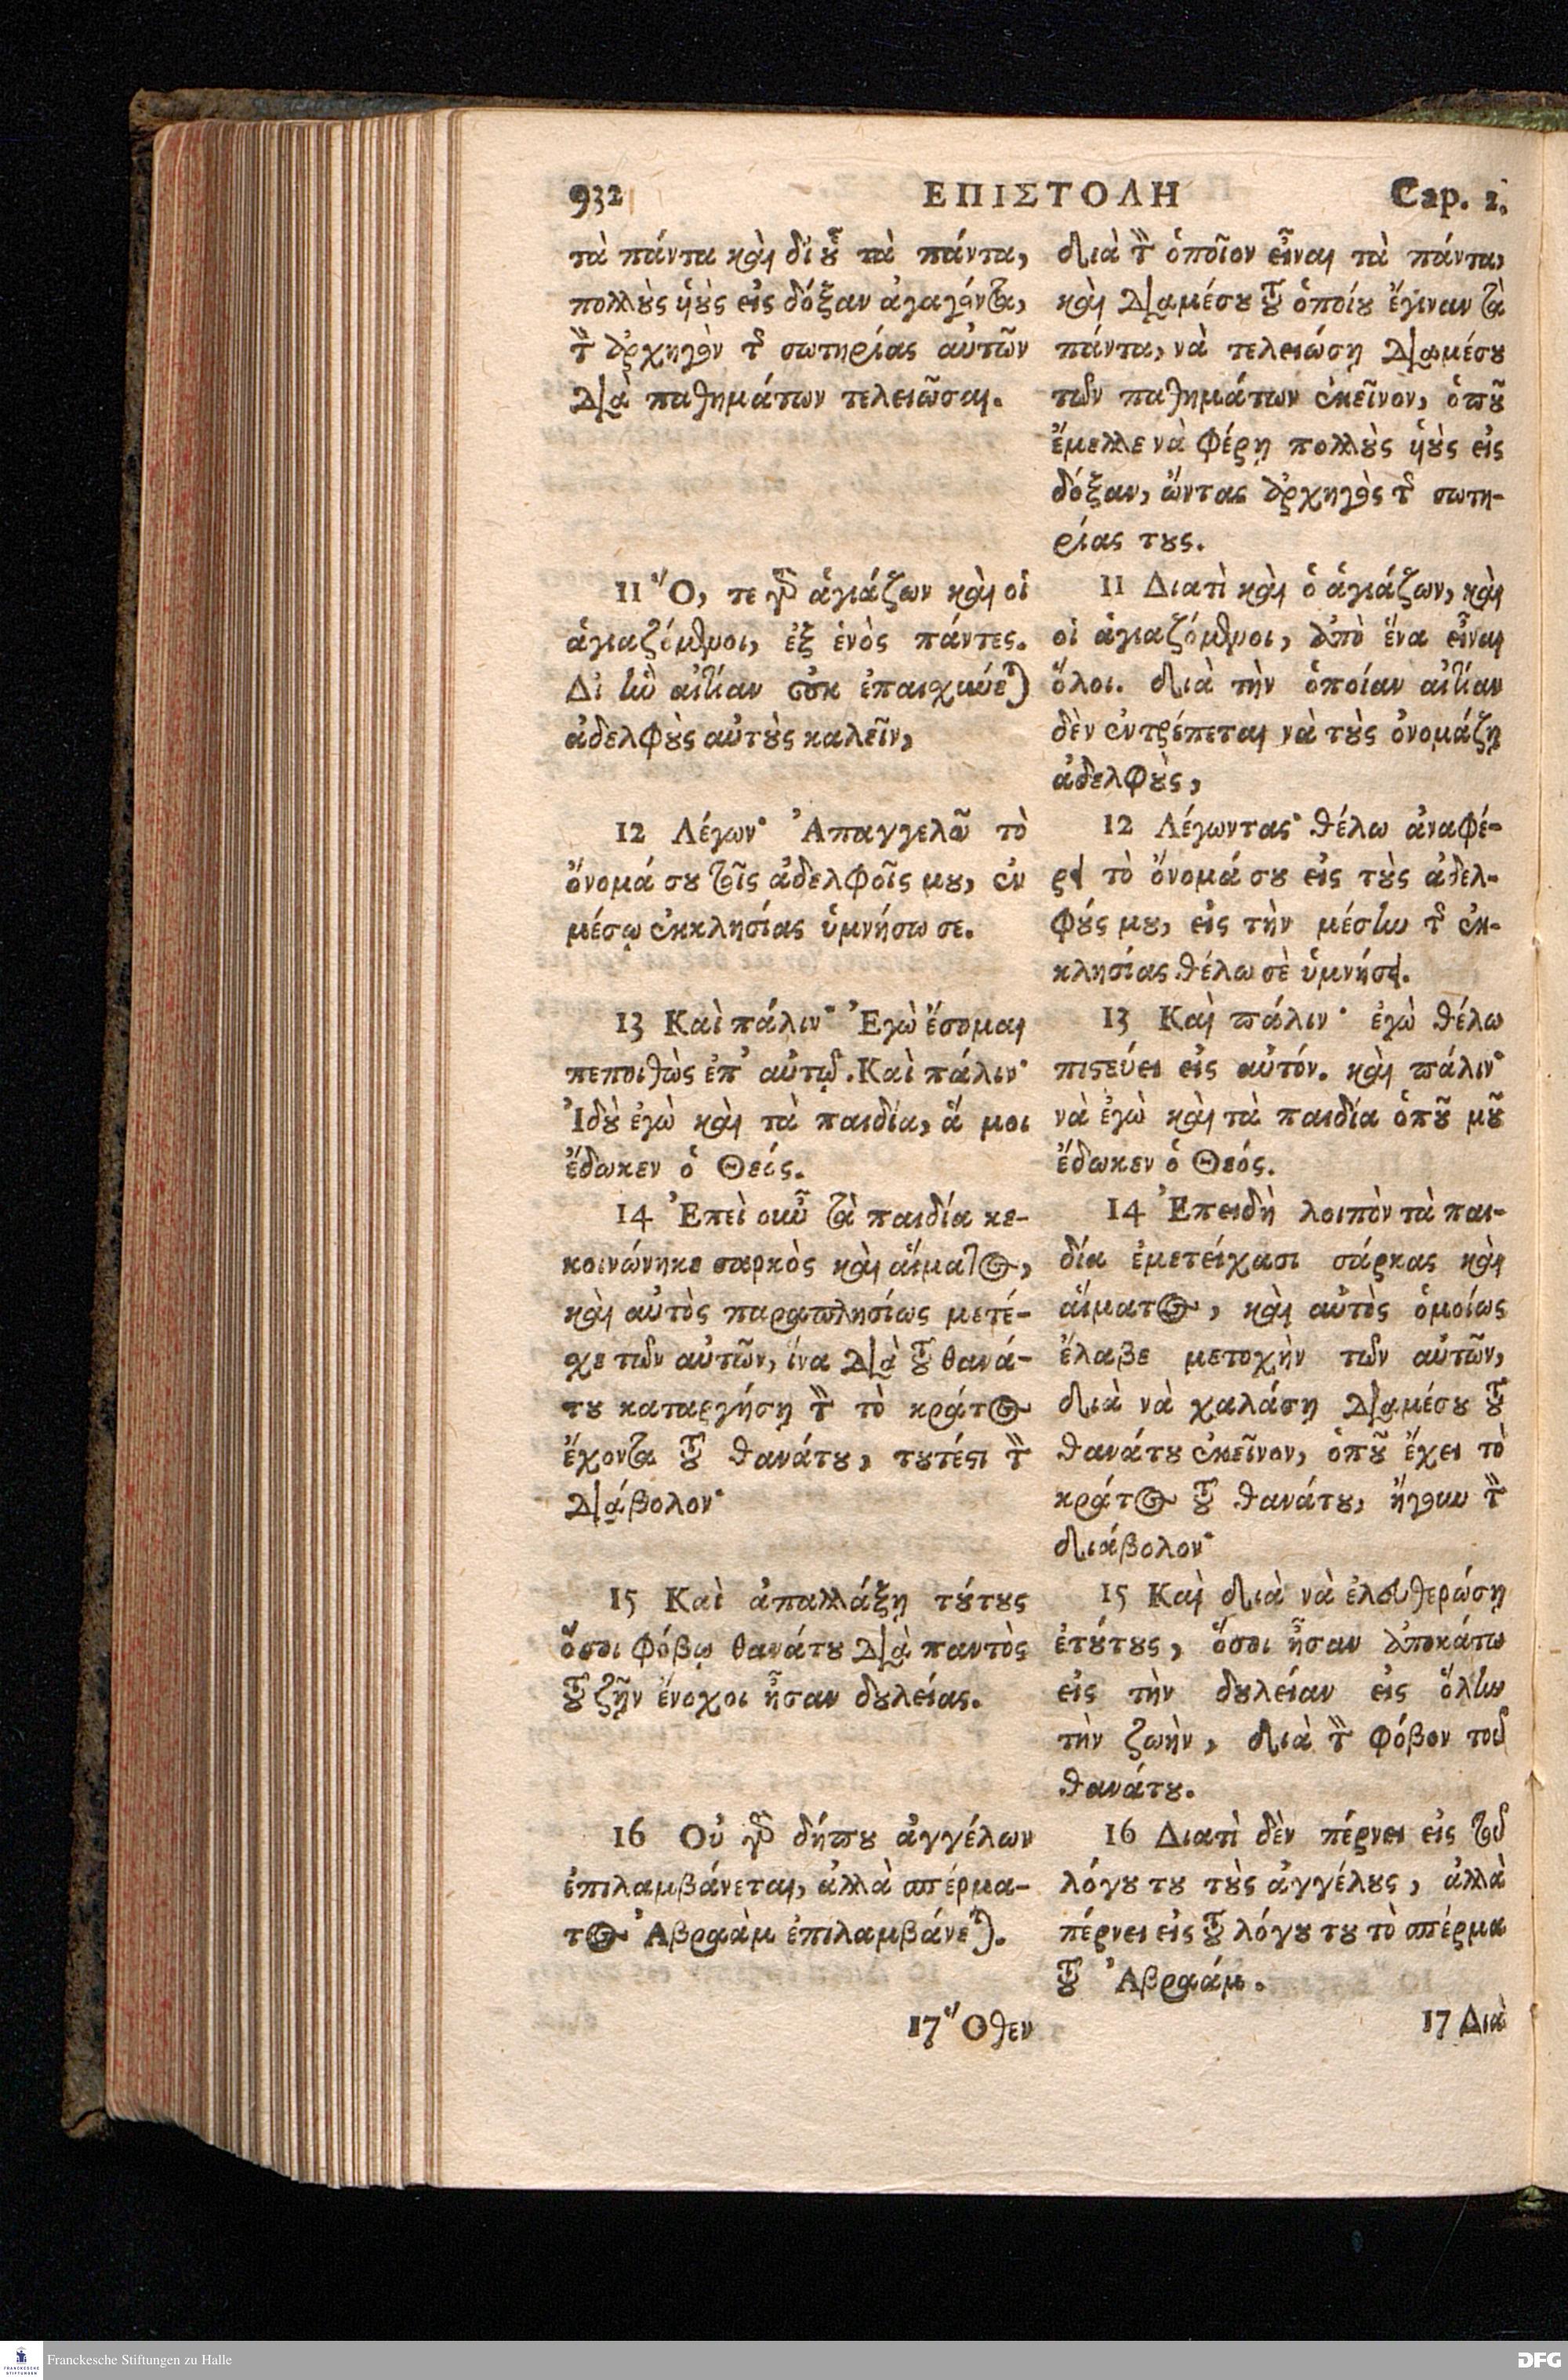 932 ΕΠΙΣΤΟΛΗ Cap. 2.
τὰ πάντα καὶ δι' οὗ τὰ πάντα,
πολλοὺς υἱοὺς εἰς δόξαν ἀγαγόντα,
τὸν ἀρχηγὸν τῆς σωτηρίας αὐτῶν
διὰ παθημάτων τελειῶσαι.
11 Ὅ, τε γὰρ ἁγιάζων καὶ οἱ
ἁγιαζόμενοι, ἐξ ἑνὸς πάντες.
Δι' ἣν αἰτίαν οὐκ ἐπαισχύνεται
ἀδελφοὺς αὐτοὺς καλεῖν,
12 Λέγων· Ἀπαγγελῶ τὸ
ὄνομά σου τοῖς ἀδελφοῖς μου, ἐν
μέσῳ ἐκκλησίας ὑμνήσω σε.
13 Καὶ πάλιν· Ἐγὼ ἔσομαι
πεποιθὼς ἐπ' αὐτῷ. Καὶ πάλιν·
Ἰδοὺ ἐγὼ καὶ τὰ παιδία, ἅ μοι
ἔδωκεν ὁ Θεός.
14 Ἐπεὶ οὖν τὰ παιδία κε-
κοινώνηκε σαρκὸς καὶ αἵματος,
καὶ αὐτὸς παραπλησίως μετέ-
σχε τῶν αὐτῶν, ἵνα διὰ τοῦ θανά-
του καταργήσῃ τὸν τὸ κράτος
ἔχοντα τοῦ θανάτου, τουτέστι τὸν
διάβολον·
15 Καὶ ἀπαλλάξῃ τούτους
ὅσοι φόβῳ θανάτου διὰ παντὸς
τοῦ ζῆν ἔνοχοι ἦσαν δουλείας.
16 Οὐ γὰρ δήπου ἀγγέλων
ἐπιλαμβάνεται, ἀλλὰ σπέρμα-
τος Ἀβραὰμ ἐπιλαμβάνεται.
17 Ὅθεν
διὰ τὸν ὁποῖον εἶναι τὰ πάντα,
καὶ διαμέσου τοῦ ὁποίου ἔγιναν τὰ
πάντα, νὰ τελειώσῃ διαμέσου
τῶν παθημάτων ἐκεῖνον, ὁποῦ
ἔμελλε νὰ φέρῃ πολλοὺς υἱοὺς εἰς
δόξαν, ὤντας ἀρχηγὸς τῆς σωτη-
ρίας τους.
11 Διατὶ καὶ ὁ ἁγιάζων, καὶ
οἱ ἁγιαζόμενοι, ἀπὸ ἕνα εἶναι
ὅλοι. διὰ τὴν ὁποίαν αἰτίαν
δὲν ἐντρέπεται νὰ τοὺς ὀνομάζῃ
ἀδελφοὺς,
12 Λέγωντας· θέλω ἀναφέ-
ρει τὸ ὄνομά σου εἰς τοὺς ἀδελ-
φούς μου, εἰς τὴν μέσην τῆς ἐκ-
κλησίας θέλω σὲ ὑμνήσει.
13 Καὶ πάλιν· ἐγὼ θέλω
πιστεύει εἰς αὐτόν. καὶ πάλιν·
νὰ ἐγὼ καὶ τὰ παιδία ὁποῦ μοῦ
ἔδωκεν ὁ Θεός.
14 Ἐπειδὴ λοιπὸν τὰ παι-
δία ἐμετείχασι σάρκας καὶ
αἵματος, καὶ αὐτὸς ὁμοίως
ἔλαβε μετοχὴν τῶν αὐτῶν,
διὰ νὰ χαλάσῃ διαμέσου τοῦ
θανάτου ἐκεῖνον, ὁποῦ ἔχει τὸ
κράτος τοῦ θανάτου, ἤγουν τὸν
διάβολον·
15 Καὶ διὰ νὰ ἐλευθερώσῃ
ἐτούτους, ὅσοι ἦσαν ἀποκάτω
εἰς τὴν δουλείαν εἰς ὅλην
τὴν ζωὴν, διὰ τὸν φόβον τοῦ
θανάτου.
16 Διατὶ δὲν πέρνει εἰς τοῦ
λόγου του τοὺς ἀγγέλους, ἀλλὰ
πέρνει εἰς τοῦ λόγου του τὸ σπέρμα
τοῦ Ἀβραάμ.
17 Διὰ
FRANCKESCHE STIFTUNGEN
Franckesche Stiftungen zu Halle
DFG